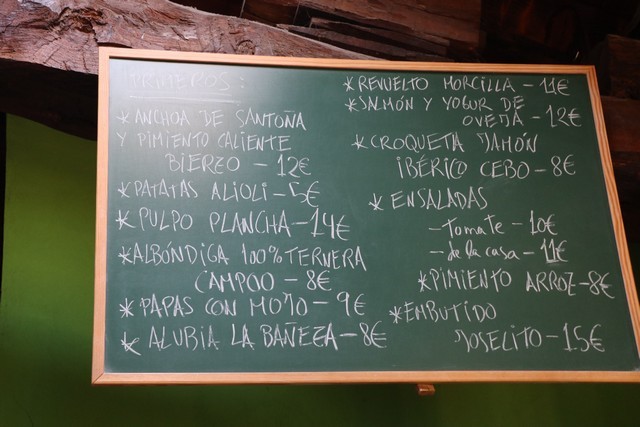 PRIMEROS:
* ANCHOA DE SANTOÑA
Y PIMIENTO CALIENTE
BIERZO - 12€
* PATATAS ALIOLI - 5€
* PULPO PLANCHA - 14€
* ALBÓNDIGA 100% TERNERA
CAMPOO - 8€
* PAPAS CON MOJO - 9€
* ALUBIA LA BAÑEZA - 8€
* REVUELTO MORCILLA - 11€
* SALMÓN Y YOGUR DE
OVEJA - 12€
* CROQUETA JAMÓN
IBÉRICO CEBO - 8€
* ENSALADAS
- tomate - 10€
- de la casa - 11€
* PIMIENTO ARROZ - 8€
* EMBUTIDO
JOSELITO - 15€